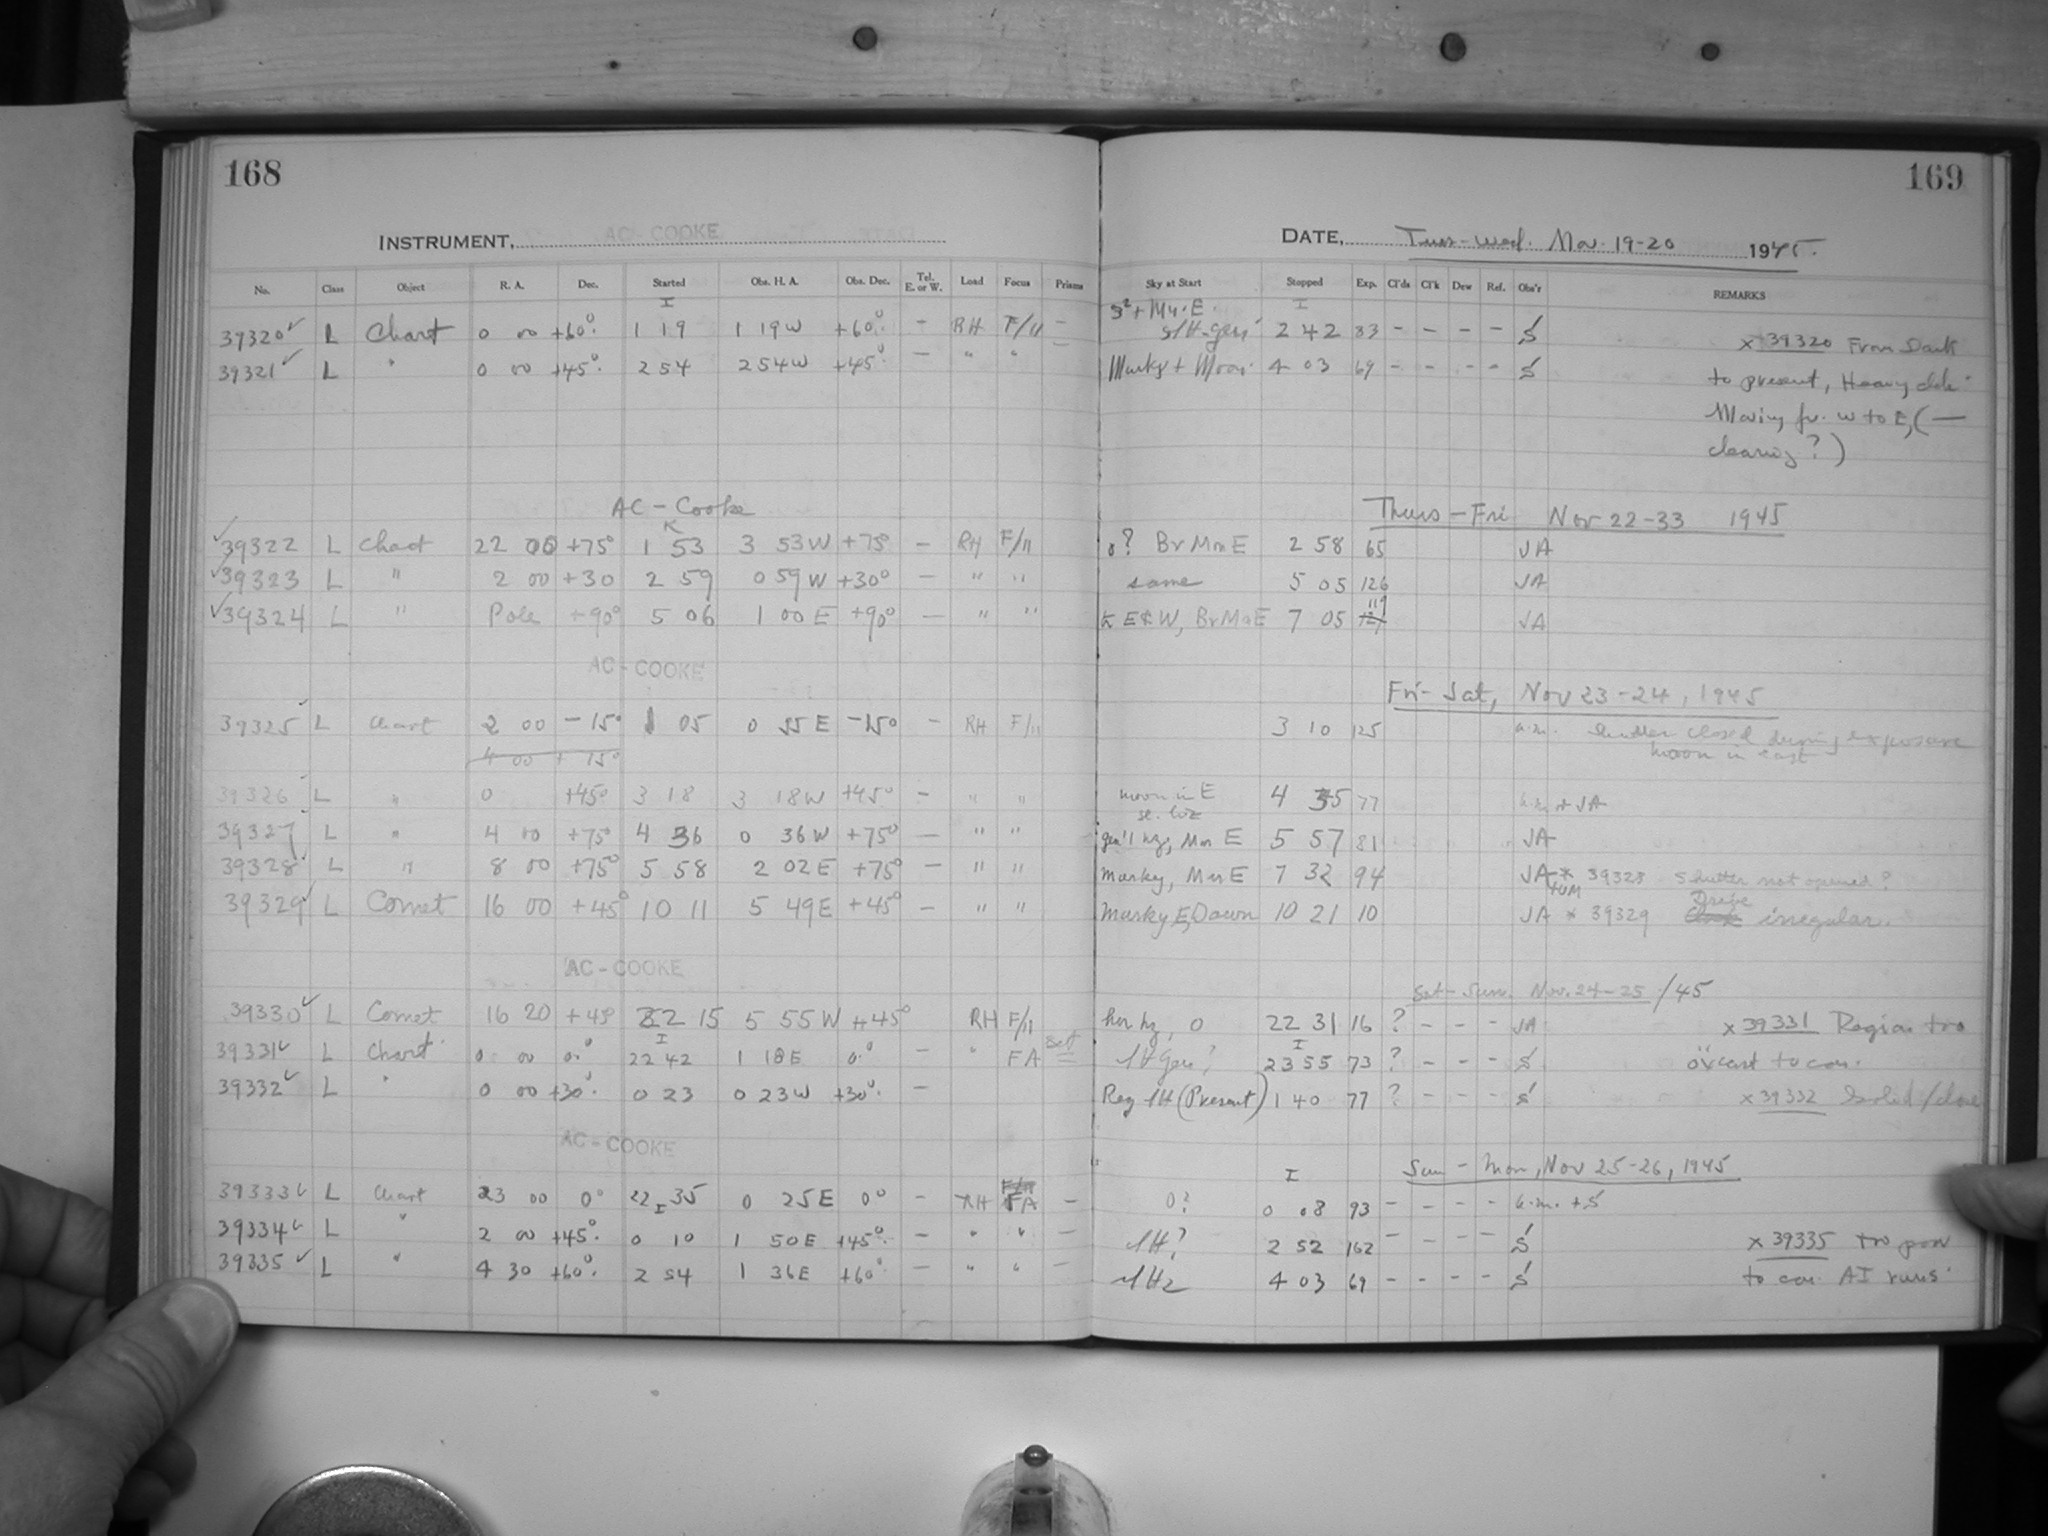 168
INSTRUMENT, AC-COOKE
No. Class Object R. A. Dec. Started Obs. H. A. Obs. Dec. Tel. E. or W. Load Focus Prisms
39320 L Chart 0 00 +60° 1 19 1 19W +60° - RH F/11 -
39321 L " 0 00 +45° 2 54 2 54W +45° - " "
AC-Cooke
39322 L Chart 22 00 +75° 1 53 3 53W +75° - RH F/11
39323 L " 2 00 +30 2 59 0 59W +30° - " "
39324 L " Pole +90° 5 06 1 00E +90° - " "
AC-COOKE
39325 L Chart 2 00 -15° 1 05 0 55E -15° - RH F/11
4 00 + 15°
39326 L " 0 +45° 3 18 3 18W +45° - " "
39327 L " 4 00 +75° 4 36 0 36W +75° - " "
39328 L " 8 00 +75° 5 58 2 02E +75° - " "
39329 L Comet 16 00 +45° 10 11 5 49E +45° - " "
AC-COOKE
39330 L Comet 16 20 +45 22 15 5 55W +45° RH F/11
39331 L Chart 0 00 0° 22 42 1 18E 0° - " FA
39332 L " 0 00 +30° 0 23 0 23W +30° -
AC-COOKE
39333 L Chart 23 00 0° 22 35 0 25E 0° - RH FA -
39334 L " 2 00 +45° 0 10 1 50E +45° - " " -
39335 L " 4 30 +60° 2 54 1 36E +60° - " " -
169
DATE, Tues-Wed. Nov. 19-20 1945.
Sky at Start Stopped Exp. Cl'ds Cl'k Dew Ref. Obs'r REMARKS
2 42 83 - - - - S x 39320 From Dark
Murky + Moon 4 03 69 - - - - S to present, Heavy clds
Moving fr. W to E, (—
clearing?)
Thurs-Fri Nov 22-33 1945
0? Br Mn E 2 58 65 JA
same 5 05 126 JA
E & W, Br Mn E 7 05 119 JA
Fri-Sat, Nov 23-24, 1945
3 10 125 h.m. Shutter closed during exposure
moon in east
moon in E 4 35 77 h.m. + JA
gen'l hz, Mn E 5 57 81 JA
murky, Mn E 7 32 94 JA * 39328 Shutter not opened?
Murky E, Dawn 10 21 10 JA * 39329 Drive irregular.
Sat-Sun. Nov. 24-25/45
hor hz, 0 22 31 16 ? - - - JA x 39331 Region too
23 55 73 ? - - - S o'cast to con.
Reg (Present) 1 40 77 ? - - - S x 39332 Solid/
Sun-Mon, Nov 25-26, 1945
0? 0 08 93 - - - - h.m. + S
2 52 162 - - - - S x 39335 too poor
4 03 69 - - - - S to con. AI runs